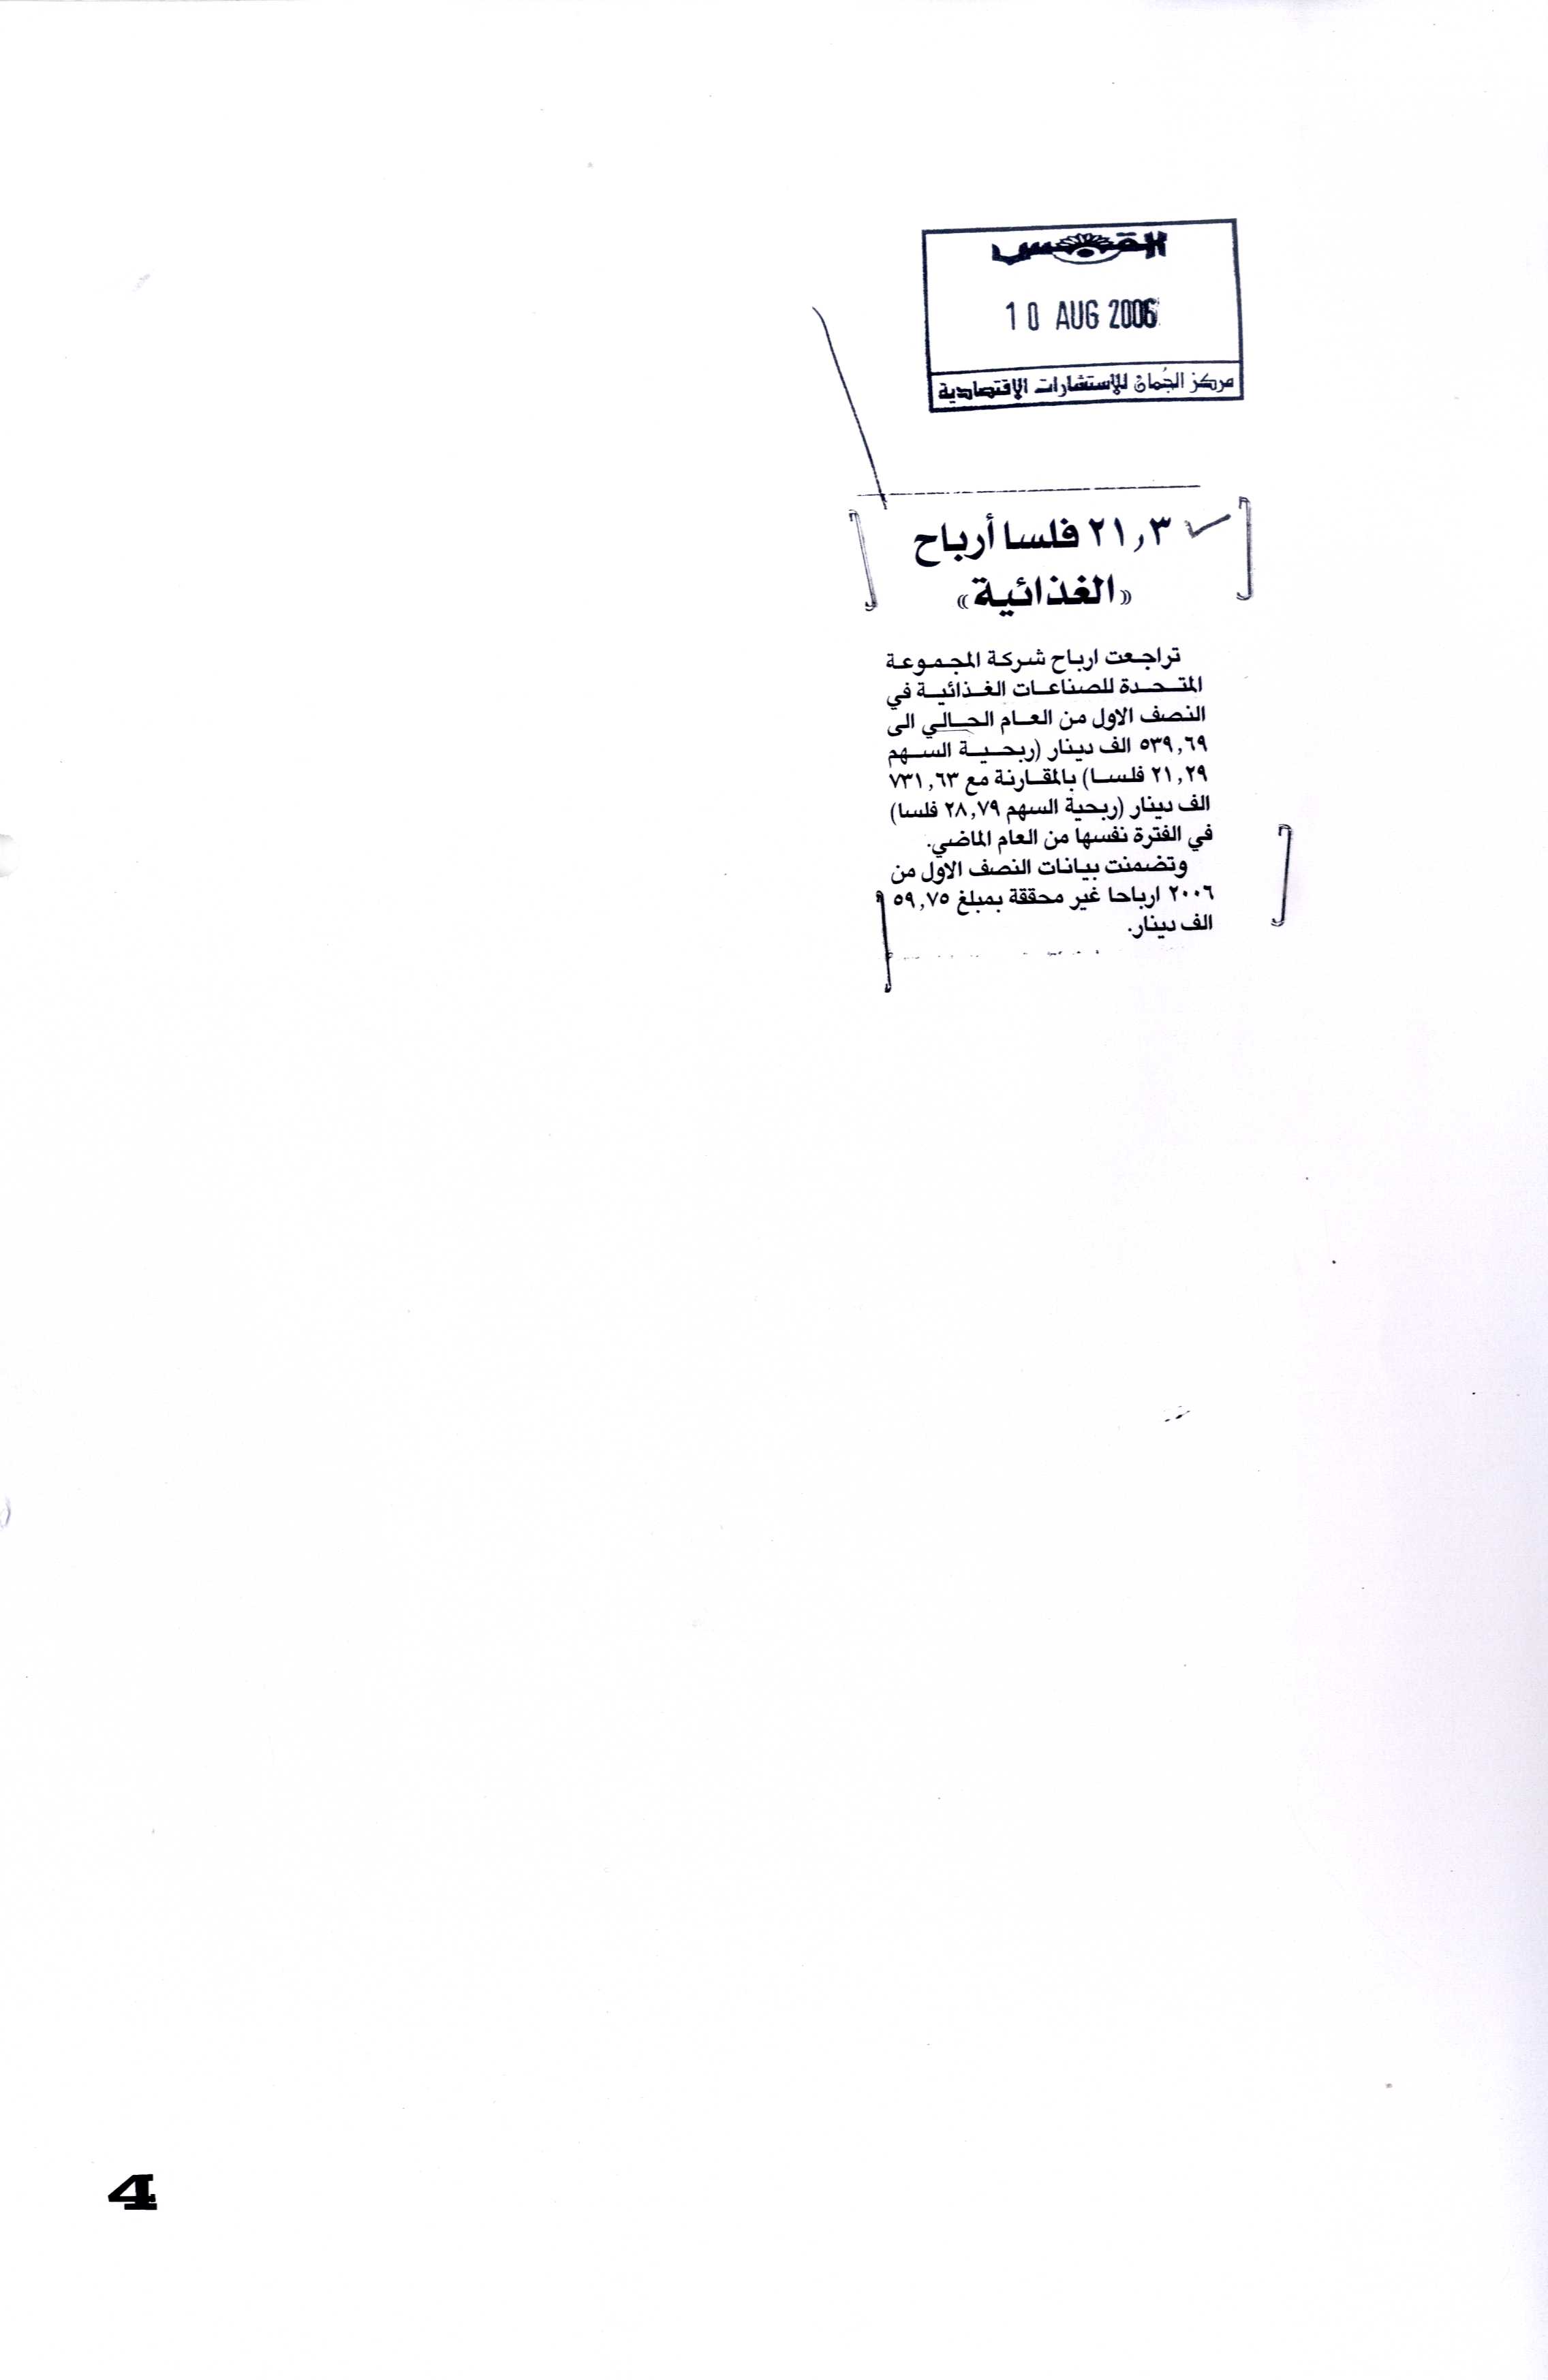 القبس
10 AUG 2006
مركز الجُمان للإستشارات الإقتصادية
٢١,٣ فلسا أرباح
«الغذائية»
تراجعت ارباح شركة المجموعة
المتحدة للصناعات الغذائية في
النصف الاول من العام الحالي الى
٥٣٩,٦٩ الف دينار (ربحية السهم
٢١,٢٩ فلسا) بالمقارنة مع ٧٣١,٦٣
الف دينار (ربحية السهم ٢٨,٧٩ فلسا)
في الفترة نفسها من العام الماضي.
وتضمنت بيانات النصف الاول من
٢٠٠٦ ارباحا غير محققة بمبلغ ٥٩,٧٥
الف دينار.
4